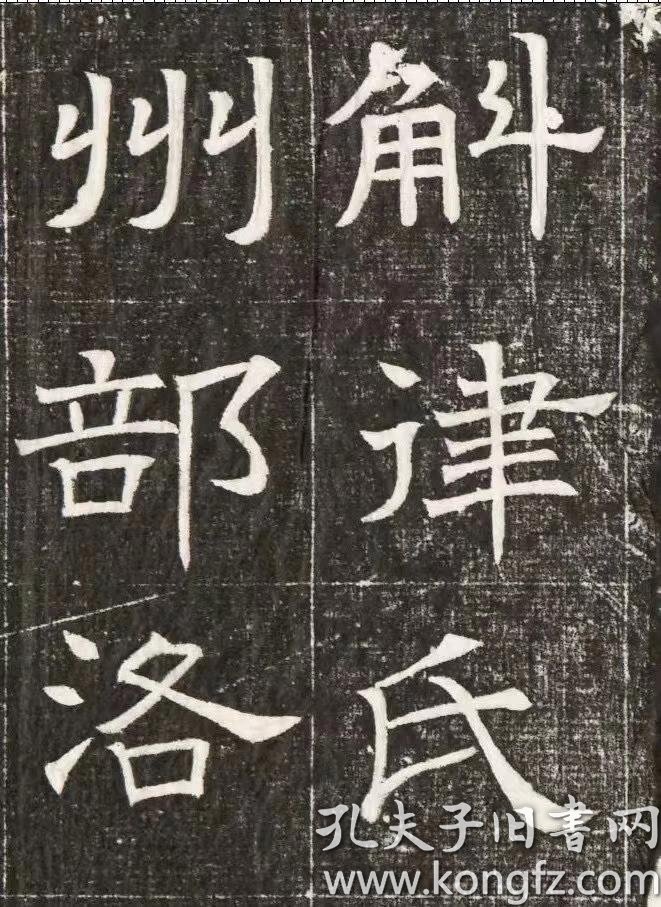 斛律氏
州部洛
孔夫子旧书网
www.kongfz.com